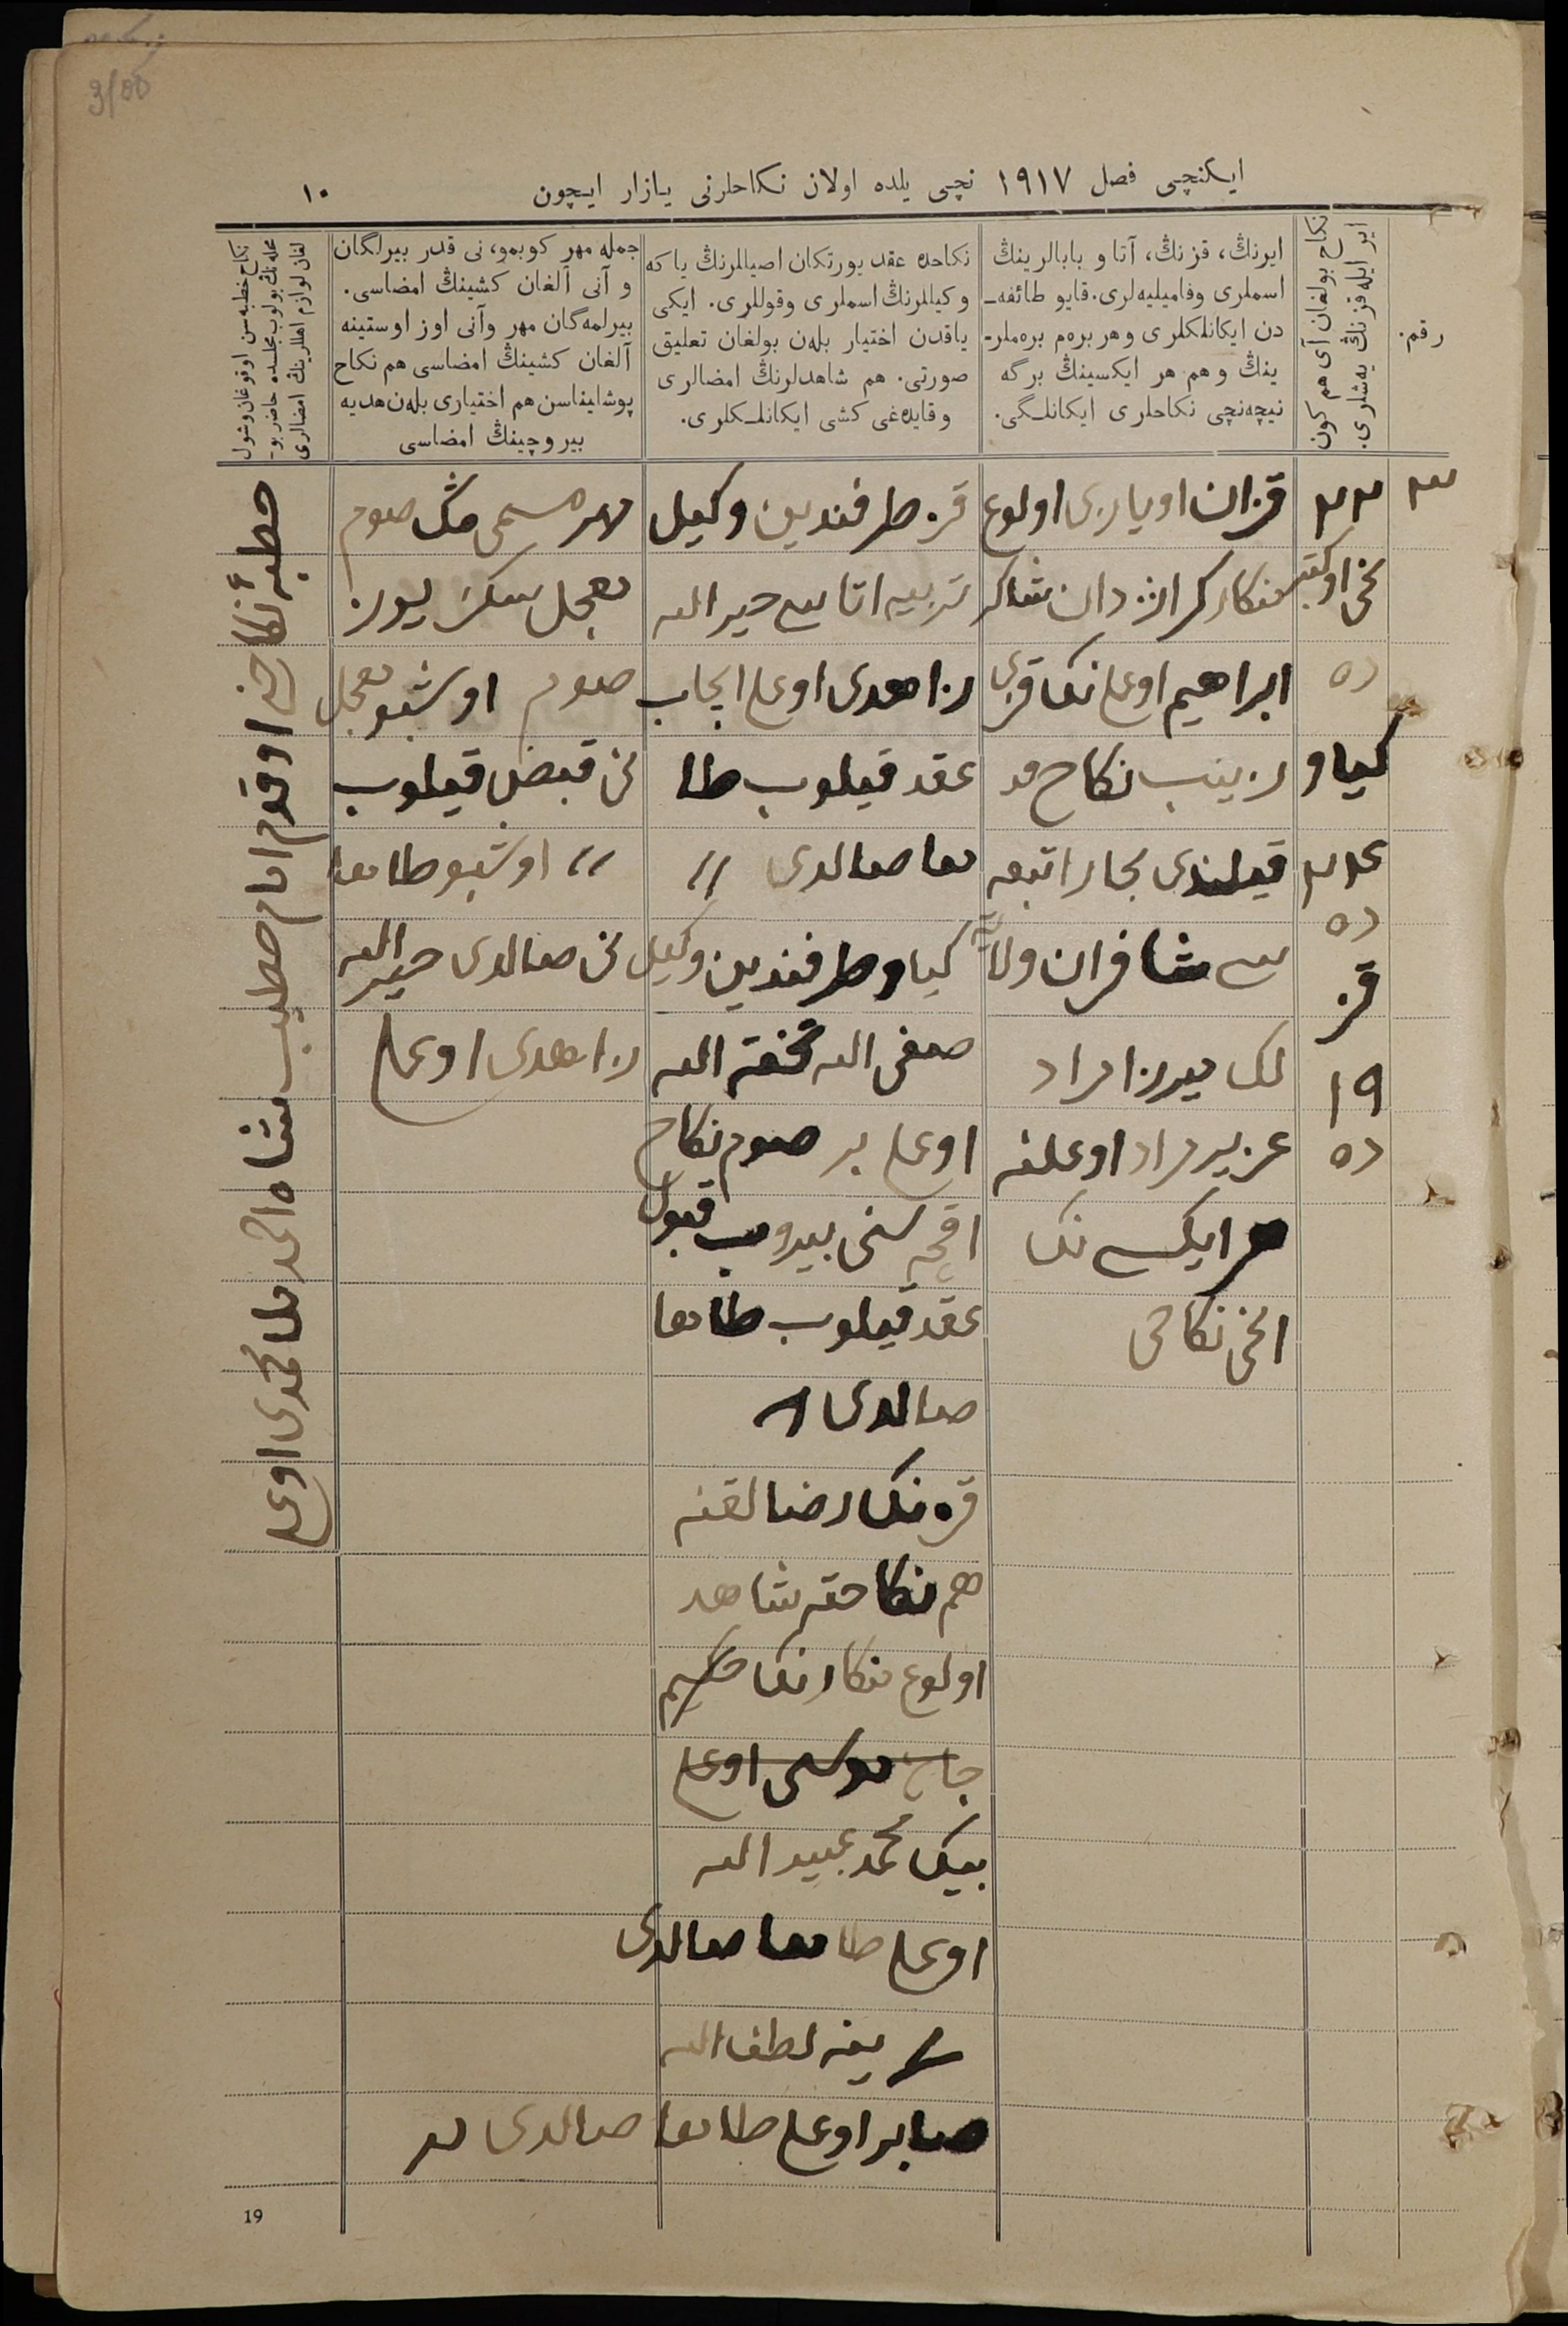 ایکنچی فصل ۱۹۱۷ نچی یلده اولان نکاحلرنی یازار ایچون
۱۰
رقم.
نکاح بولغان آی هم کون
ایر ایله قزنڭ یه‌شلری.
ایرنڭ، قزنڭ، آتا و بابالرینڭ
اسملری وفامیلیه‌لری. قایو طائفه‌ـ
دن ایکانلکلری وهر بره‌م بره‌ملرـ
ینڭ وهم هر ایکسینڭ برگه
نیچه‌نچی نکاحلری ایکانلـگی.
نکاحده عقد یورتکان اصیللرنڭ یا که
وکیللرنڭ اسملری وقوللری. ایکی
یاقدن اختیار بله‌ن بولغان تعلیق
صورتی. هم شاهدلرنڭ امضالری
وقایده‌غی کشی ایکانلـکلری.
جمله مهر کوبمو، نی قدر بیرلگان
و آنی آلغان کشینڭ امضاسی.
بیرلمه‌گان مهر وآنی اوز اوستینه
آلغان کشینڭ امضاسی هم نکاح
پوشلیناسن هم اختیاری بله‌ن هدیه
بیروچینڭ امضاسی
نکاح خطبه‌سن اوقوغان وشول
محله‌نڭ بولوب مجلسده حاضر بوـ
لغان لوازم اهللرینڭ امضالری
۳
۲۳
نچی اوکتبر
ده
کیاو
۲۴
ده
قز
۱۹
ده
قزان اویازی اولوغ
منکار کراشدان شاکر
ابراهیم اوغلی نک قزی
زینب نکاح قد
قیلندی بخارا تبعه
سی شافران ولایة
لک میرزا مراد
عزیز مراد اوغلنه
هر ایکسی نک
انچی نکاحی
قز طرفندین وکیل
تربیه اتاسی خیرالله
زاهدی اوغلی ایجاب
عقد قیلوب طا
مغا صالدی //
کیاو طرفندین وکیل
صفی الله تحفة الله
اوغلی بر صوم نکاح
اقچه سنی بیروب قبول
عقد قیلوب طامغا
صالدی
قزنک رضالقنه
هم نکاحقه شاهد
اولوغ منکارنک حکیم
جان موسی اوغلی
بیک محمد عبیدالله
اوغلی طامغا صالدی
ینه لطف الله
صابر اوغلی طامغا صالدی
مهر مسمی منک صوم
معجل سکز یوز
صوم اوشبو معجل
نی قبض قیلوب
// اوشبو طامغا
نی صالدی خیرالله
زاهدی اوغلی
خطبهٔ نکاحنی اوقودم امام خطیب شاه احمد ملا محمدی اوغلی
19